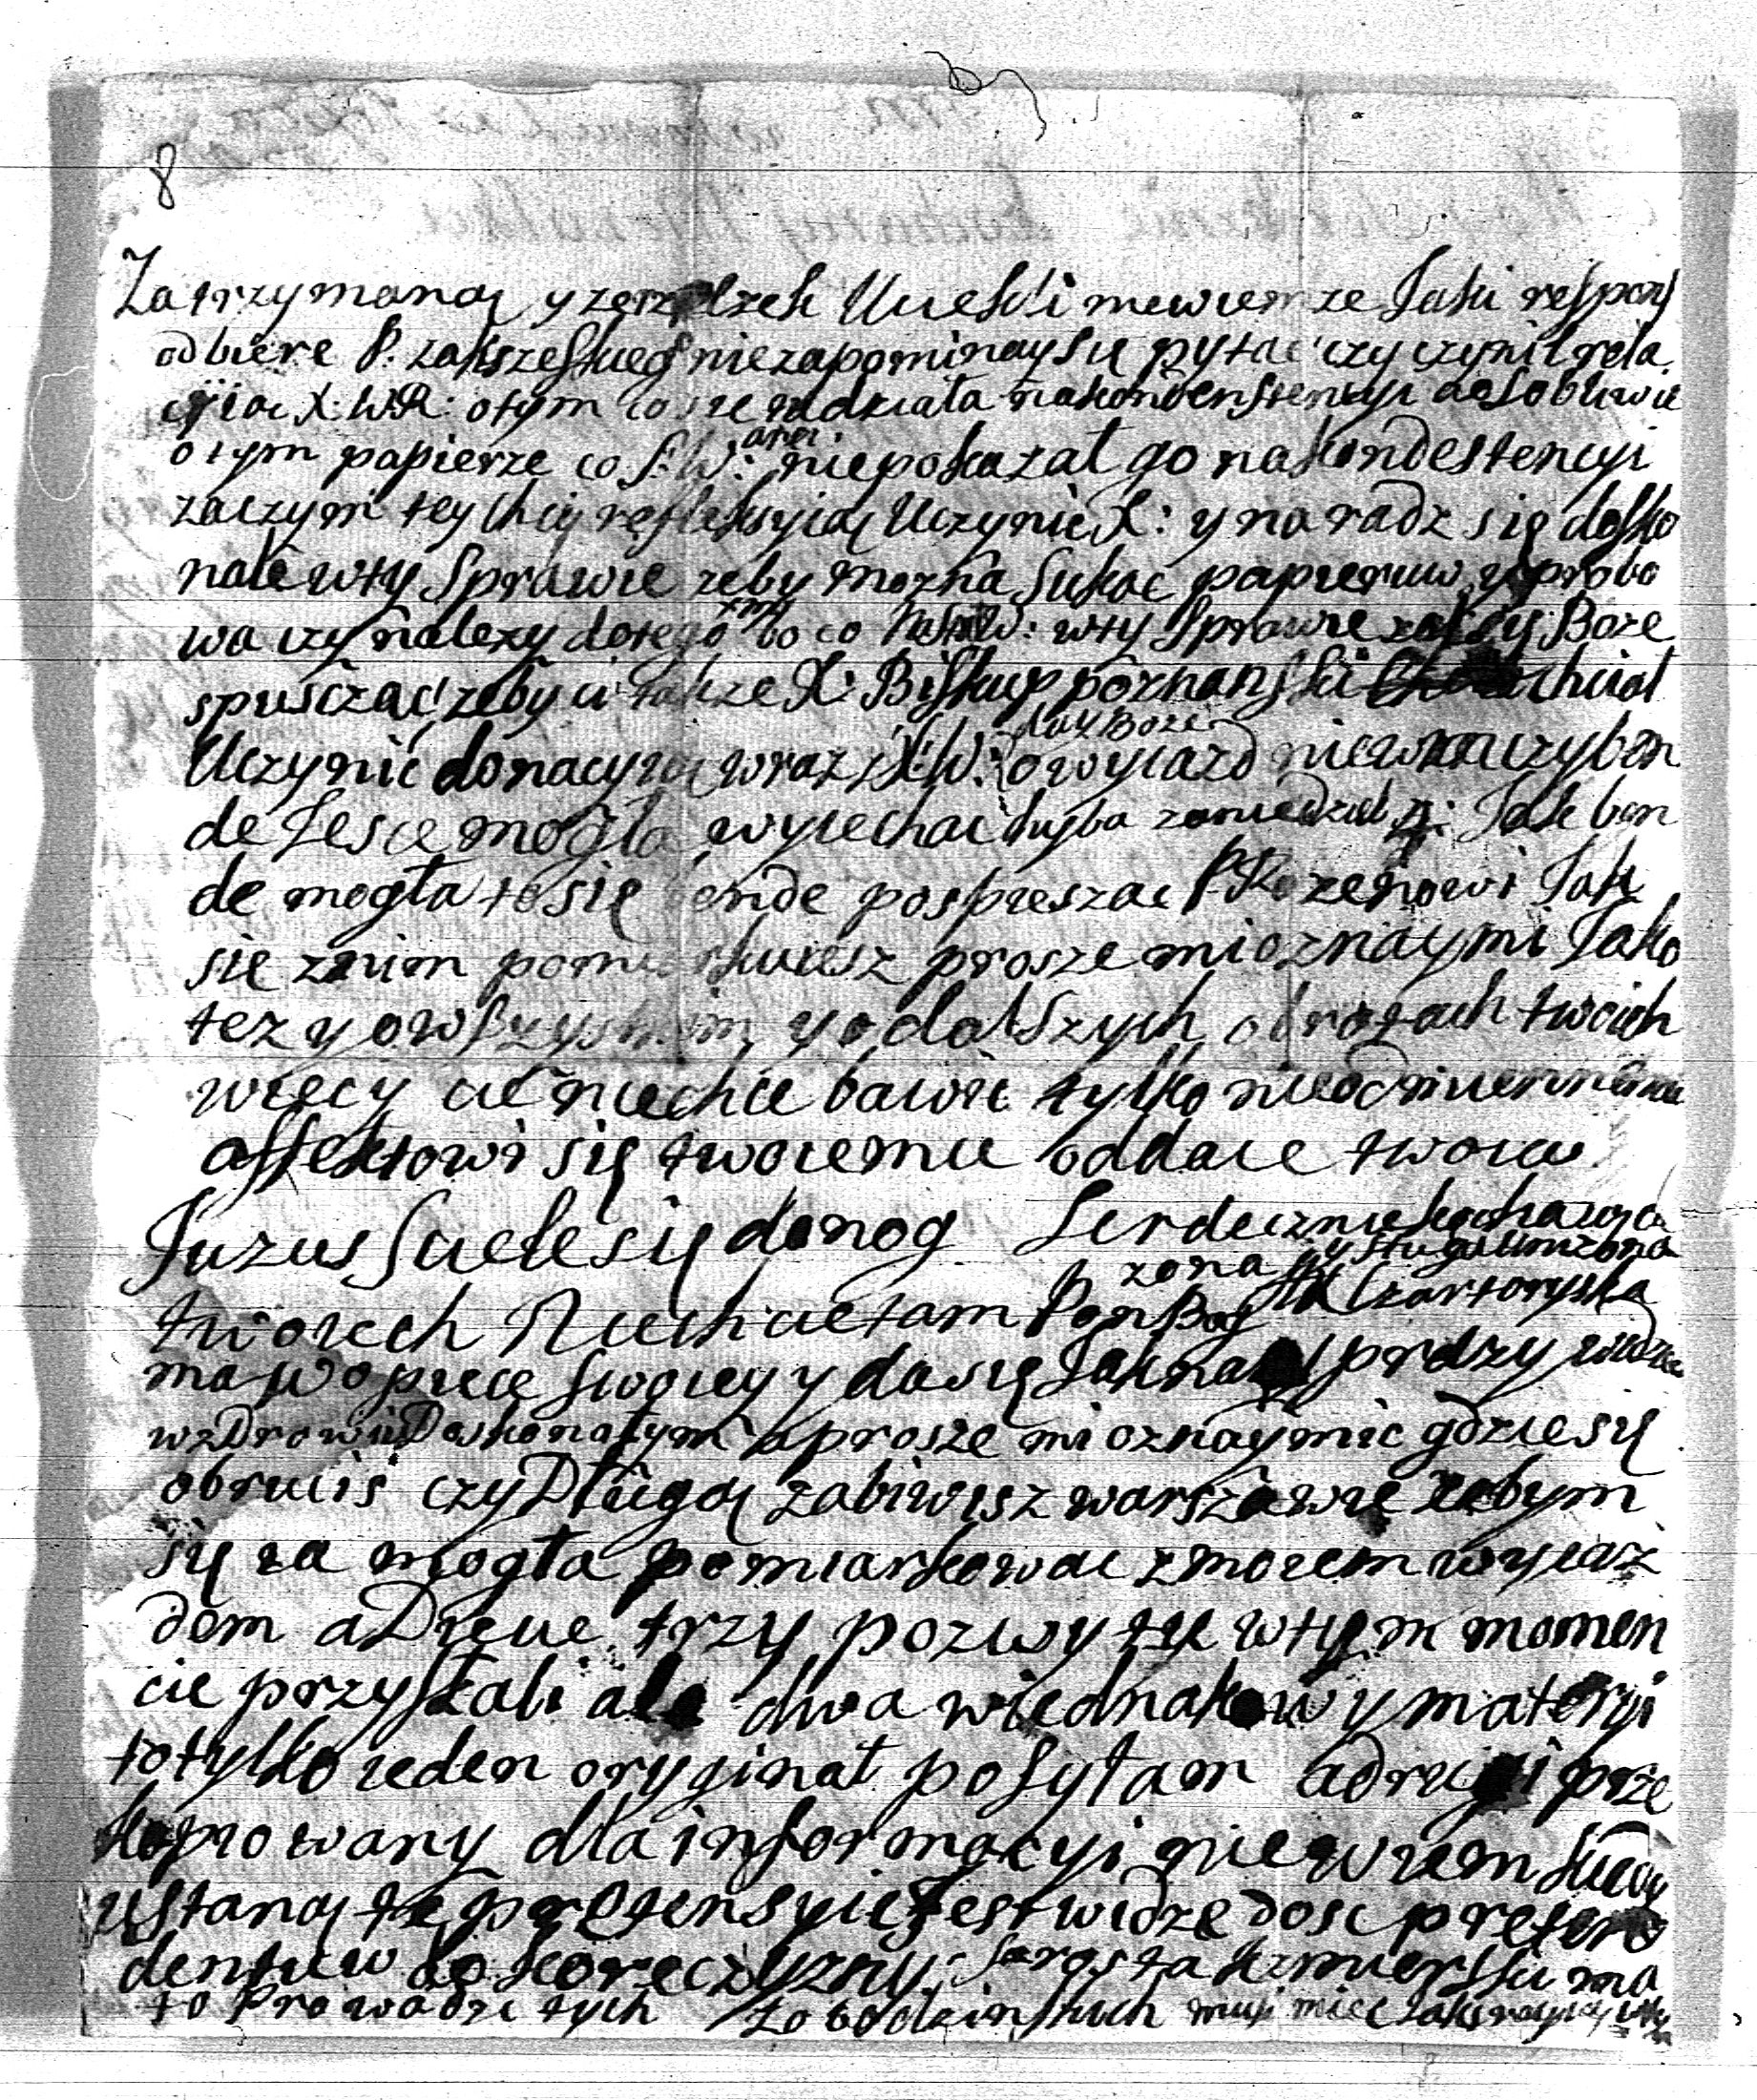 8
Zatrzymanaj y ze Jaki respons
odbiere P. niezapominay się pytac czy czynił rela
cyiaj X: WR: o tym co sie działa na kondenstencyi a osobliwie
o tym papierze co nie pokazał go na kondestencyi
zaczym tey chciy refleksyiaj Uczynic X: y naradz się dosko
nale w ty Sprawie zeby mozna Sukac papieruw y probo
wa czy nalezy do tego bo co w ty Sprawie Boze
spusczac zeby i także X: Biskup poznanski chciał
Uczynic donacyiaj wraz z X: W: day Boze o wyiazd niewiem czy ben
de Jesce mogła wyiechac chyba za niedziel Jak ben
de mogła to się bende pospieszac P. Rozenowi Jak
się z nim pomiarkuiesz prosze mi oznaymi Jako
tez y o wszyskim y o dalszych obrotach twoich
wiecy cie niechce bawic tylko nieodmiennemu
affektowi się twoiemu oddaie twoia
Juzus sciele się do nog Serdecznie kochaiąca
zona y sługa unizona
twoiech Niech cie tam Pan Bog Czartoryska
ma w opiece swoiey y da się Jak nay prdzy widziec
w zdrowiu Doskonałym a prosze mi oznaymic gdzie się
obrucis czy Długoj zabiwisz w warszawie zebym
się ia mogła pomiarkowac z moiem wyiaz
dem a Dzieue trzy pozwy tu w tym momen
cie przysłali ale dwa w iednakowy materyi
to tylko ieden oryginał posyłam a drugi prze
kopiowany dla informacyi nie wiem kiedy
ustanoj te pretensyie Jest widze dosc preten
dentuw do Koreczyzny Starosta ma
to Prowadzi tych Łobodzinskich musi miec